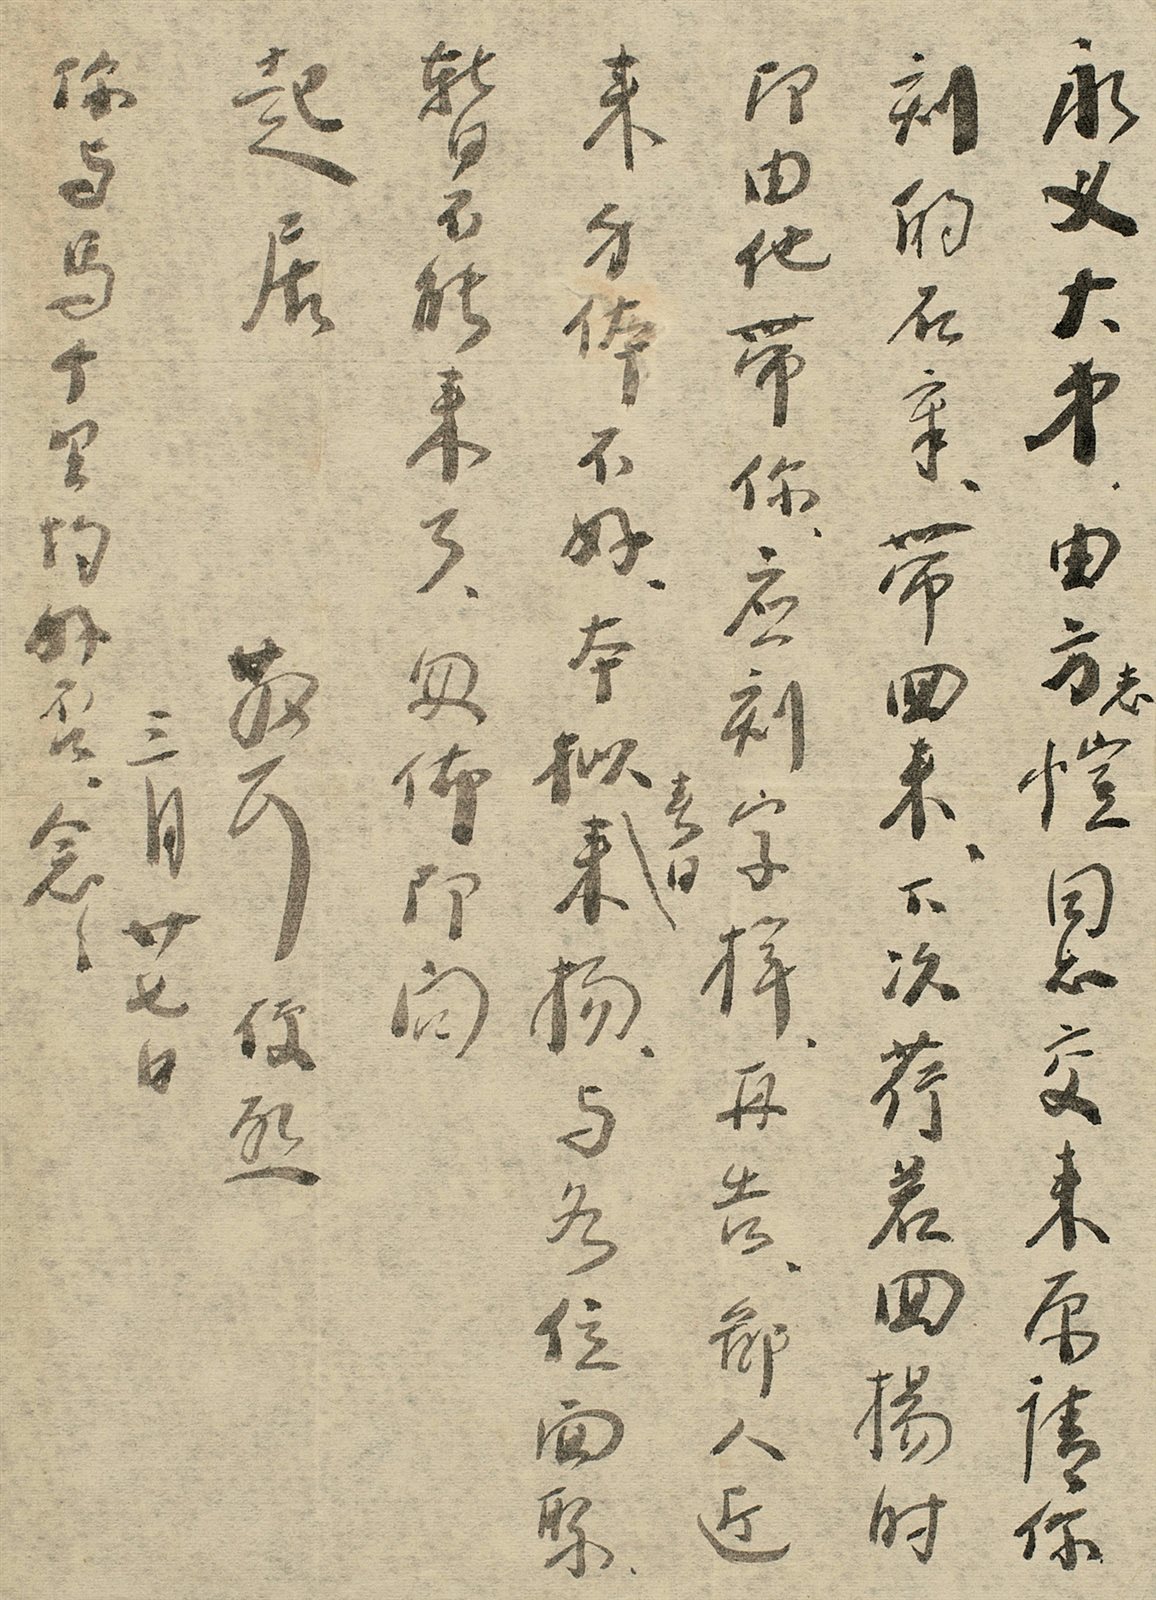 永义大弟．由方志恺同志交来原请你
刻的石章、带回来、下次荷若回揚时
即由他带你、应刻字样、再告、鄙人近
来身体不好、本拟春日来扬、与各位面聚、
暂日不能来了、匆佈即问
起居
敬可 便煞
三月廿七日
你与马千里均好否、念々